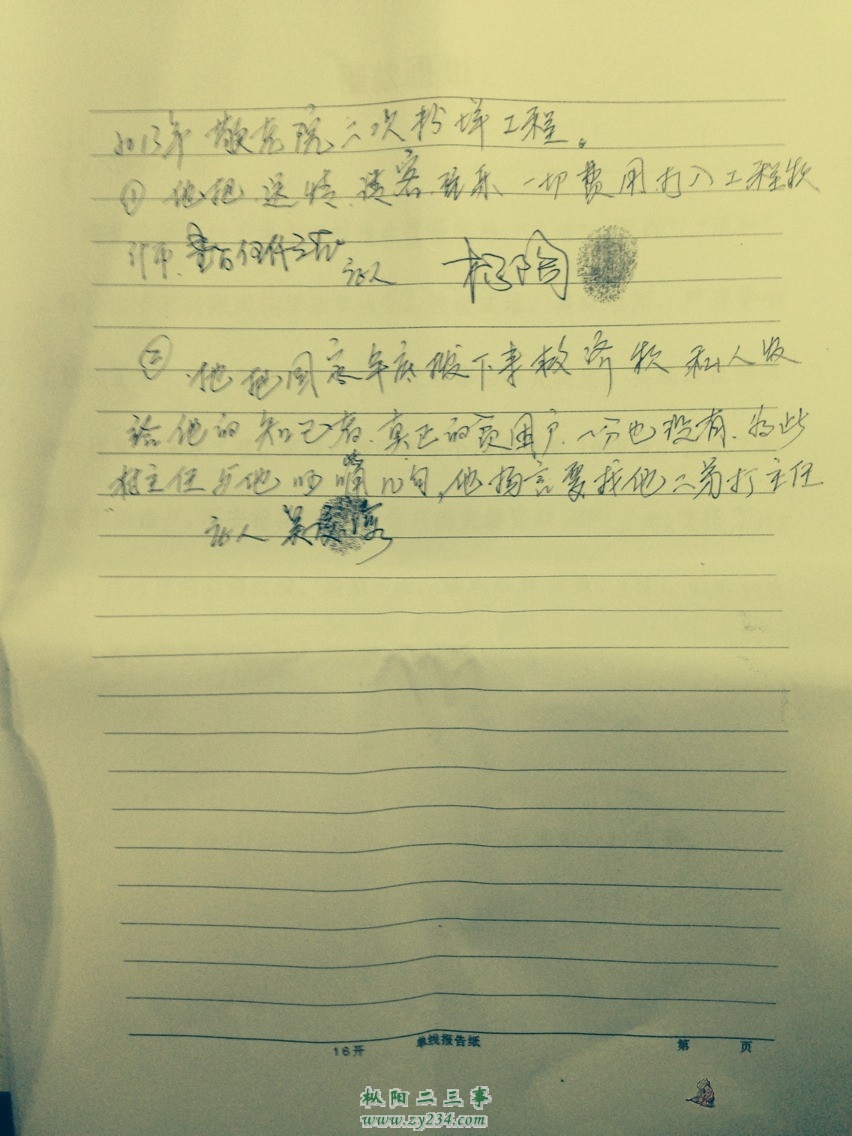 2013年敬老院六次粉墙工程。
① 他把送情、请客、娱乐一切费用打入工程款
证人
② 他把国家年底拨下来救济款私人发
给他的知己者、真正的贫困户、一分也没有、为此
村主任与他吵嘴几句,他扬言要找他二弟打主任
证人 吴
16开 单线报告纸 第 页
枞阳二三事
www.zy234.com